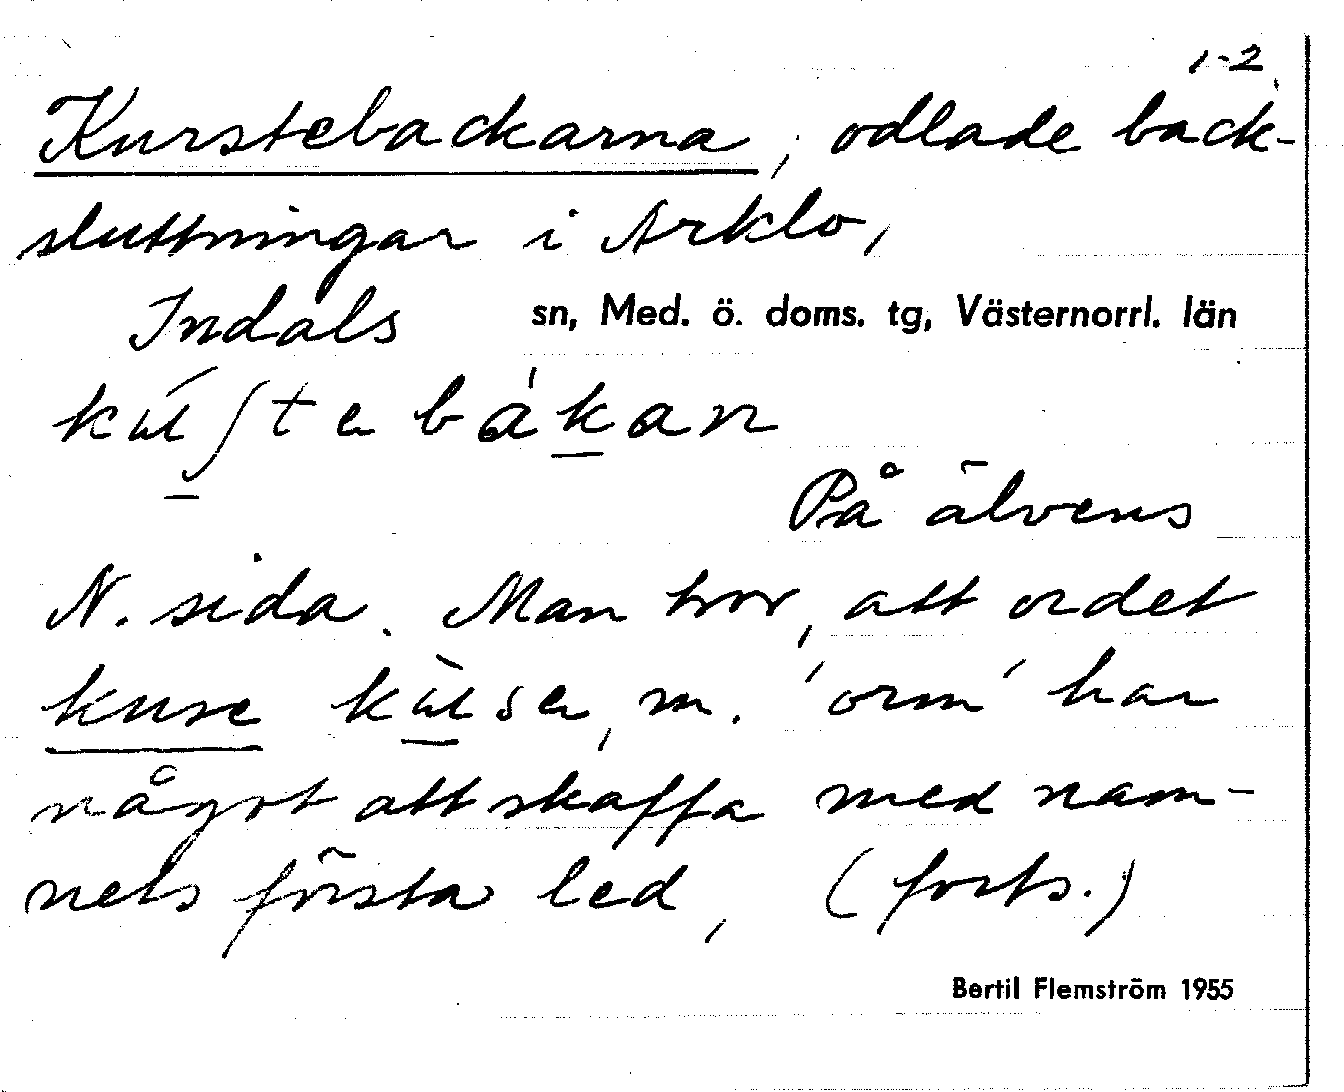 1-2
Kurstebackarna, odlade back-
sluttningar i Arklo,
Indals sn, Med. ö. doms. tg, Västernorrl. län
På älvens
N. sida. Man tror, att ordet
kurse, m. 'orm' har
något att skaffa med nam-
nets första led, (forts.)
Bertil Flemström 1955